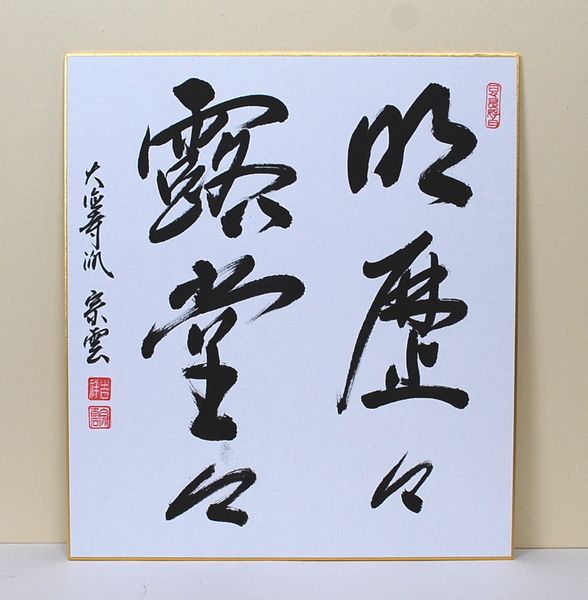 明歴々
露堂々
大徳寺派 宗雲